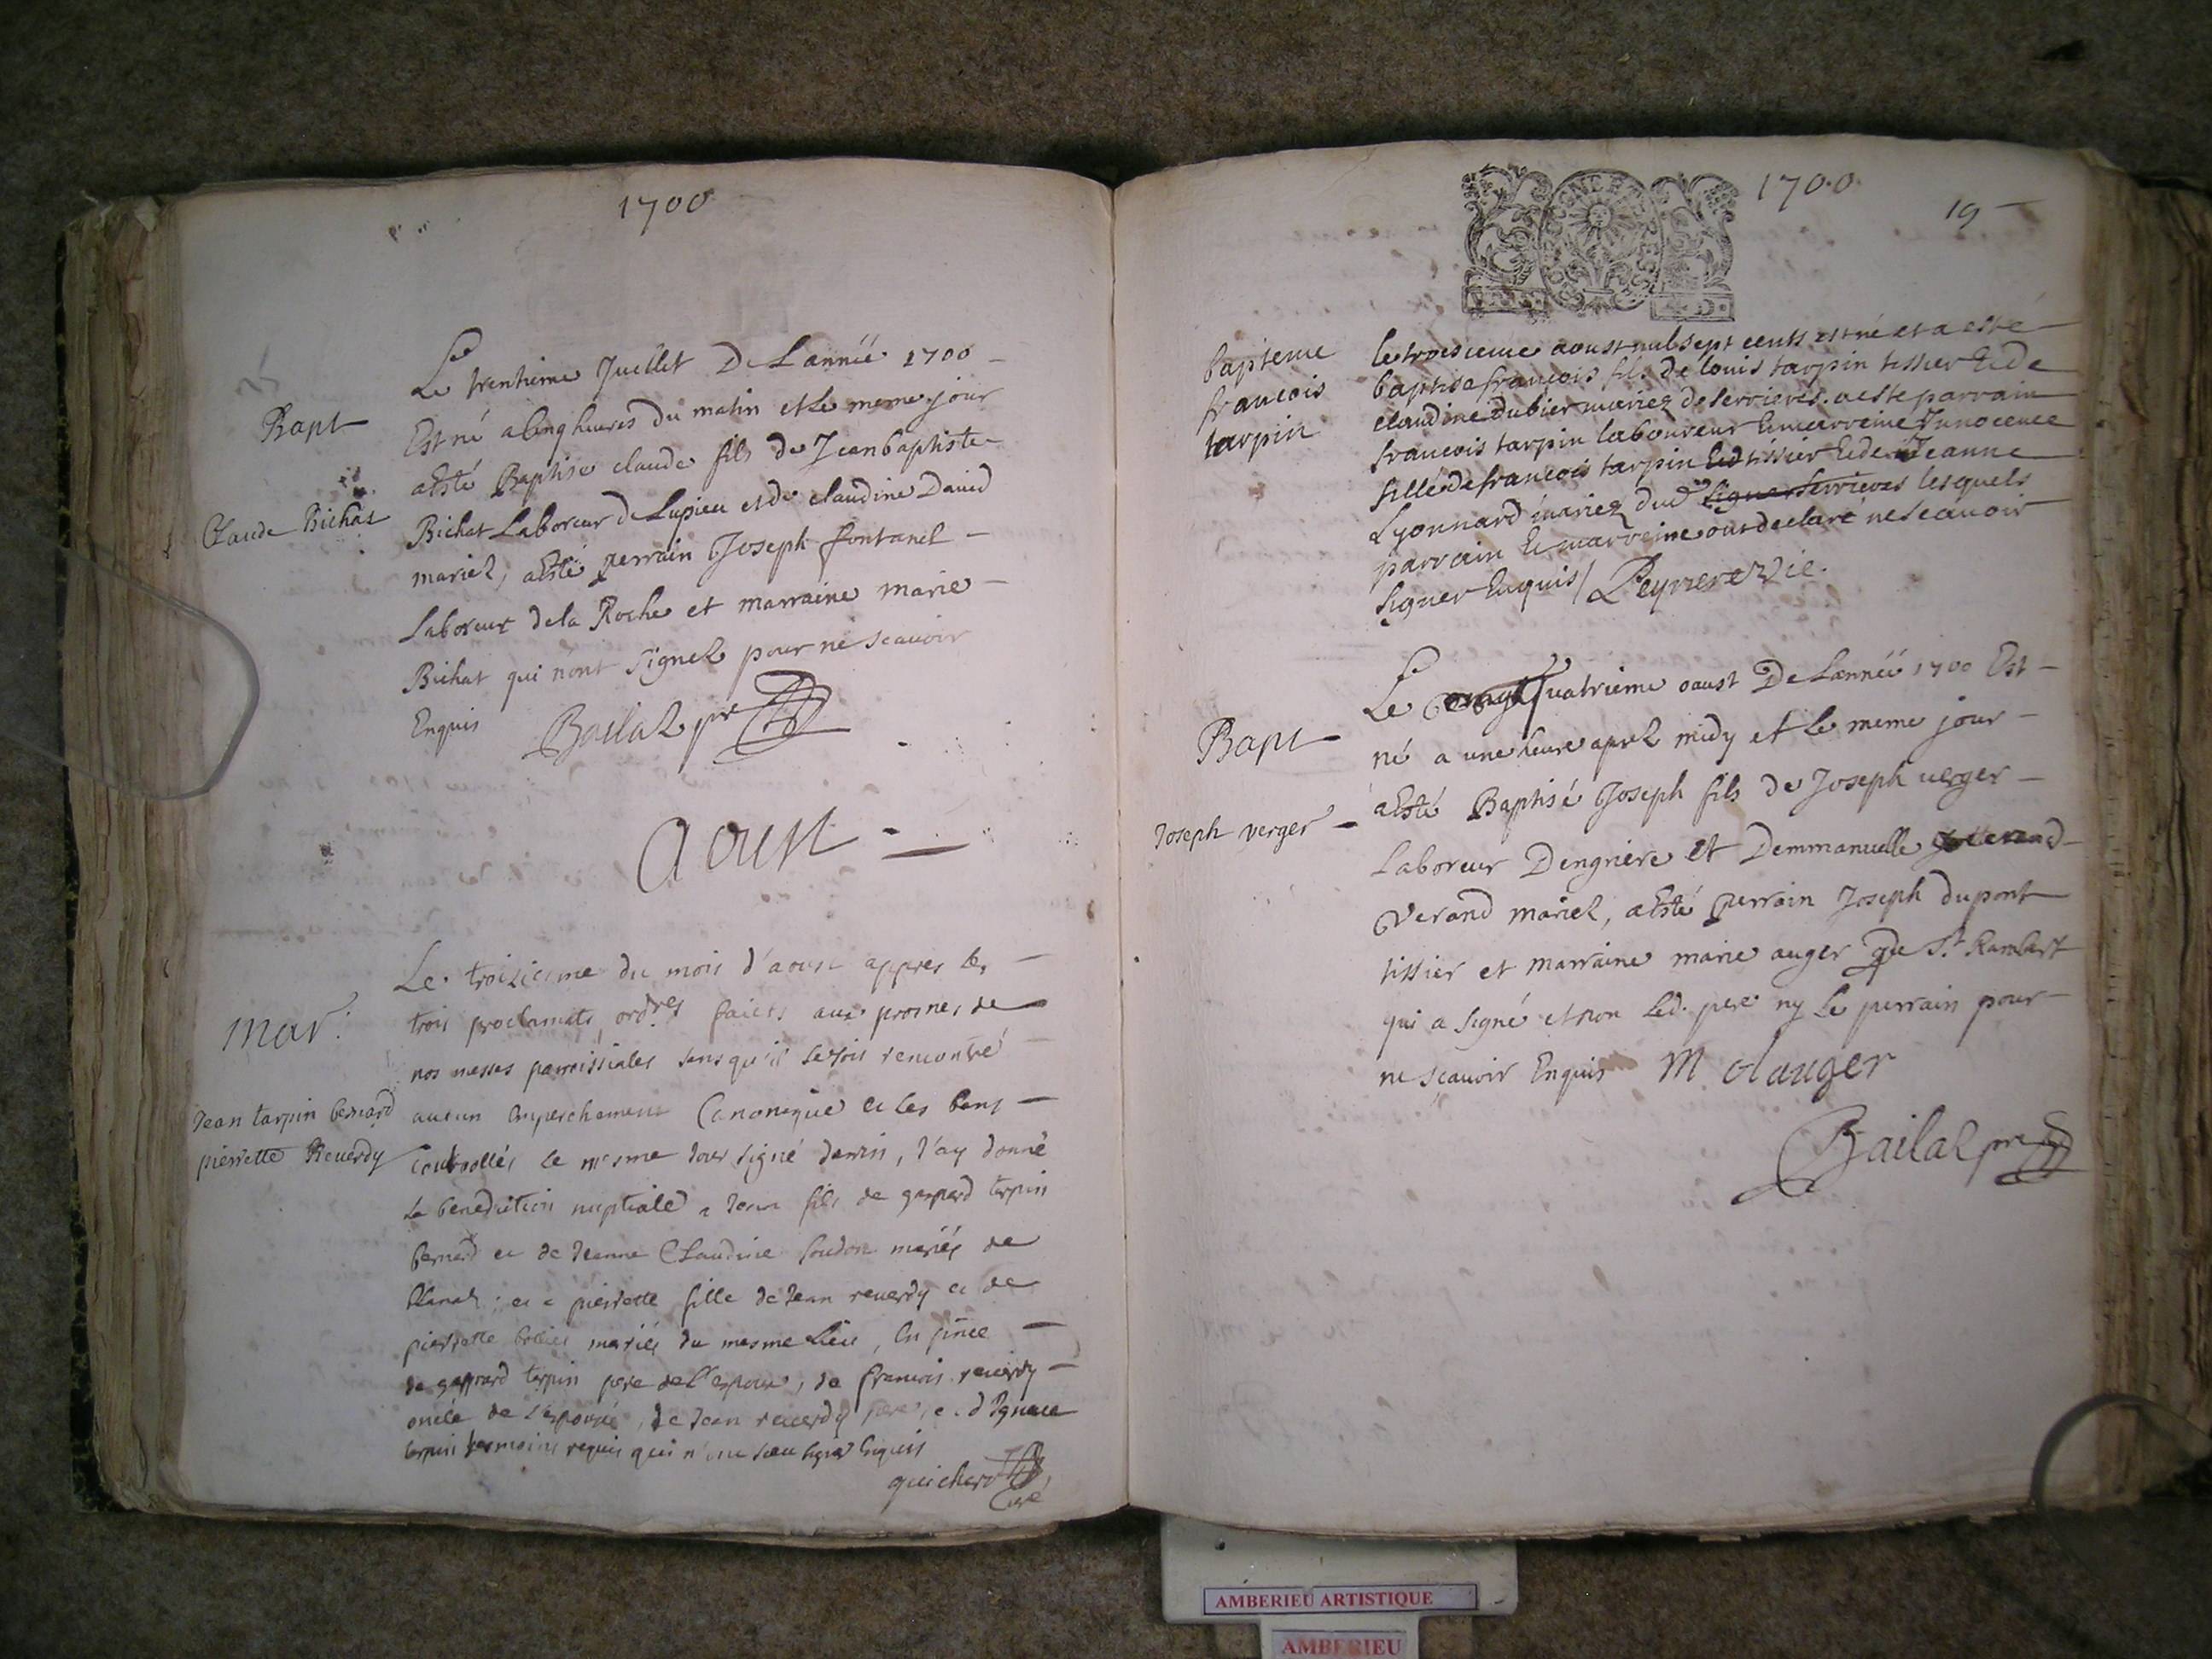 1700
Bapt
Claude Bichat
Le trentieme Juillet De Lannéé 1700
Est né a cinq heures du matin et le meme jour
a Esté Baptise claude fils de Jean baptiste
Bichat Laboreur de Lupieu et de claudine David
mariez, a Esté perrain Joseph fontanel
Laboreur dela Roche et marraine marie
Bichat qui n'ont signez pour ne scauoir
Enquis Bailaz pre
Aoust
mar.
Jean tarpin bernard
pierrette Reuerdy
Le troisiesme du mois d'aoust appres les
trois proclamats ordres faicts aux prosnes de
nos messes parroissiales sans qu'il se soit rencontré
aucun empeschement Canonique et les bans
controllés le mesme jour signé derrin, J'ay donné
la benediction nuptiale a Jean fils de gaspard tarpin
bernard et de Jeanne Claudine mariés de
et a pierrette fille de Jean reuerdy et de
pierrette mariés du mesme Lieu, En pnce
de gaspard tarpin pere de l'espoux, de francois reuerdy
oncle de l'espouse, de Jean reuerdy pere, et d'Ignace
tarpin tesmoins requis qui n'ont sceu signer Enquis
guichard
Curé
1700
19
bapteme
francois
tarpin
le troisieme aoust mil sept cents est né et a esté
baptise francois fils de louis tarpin tissier Et de
claudine dubier mariez de serrieres. a esté parrain
francois tarpin laboureur Et marreine Innocence
fille de francois tarpin tissier Et de Jeanne
Lyonnard mariez dud serrieres lesquels
parrain Et marreine ont declaré ne scavoir
signer Enquis / Peyriere vic.
Bapt
Joseph verger
Le quatrieme aoust De Lannéé 1700 Est
né a une heure aprez midy et le meme jour
a Esté Baptisé Joseph fils de Joseph uerger
Laboreur Dengriere et Demmanuelle
Verand mariez, a Esté perrain Joseph dupont
tissier et marraine marie auger de St. Rambert
qui a signé et non Led. pere ny le perrain pour
ne scauoir Enquis M olauger
Bailaz pre
AMBERIEU ARTISTIQUE
AMBERIEU